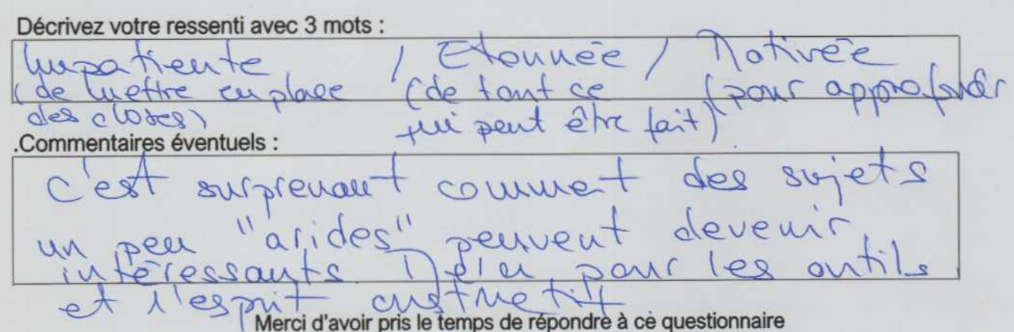 Décrivez votre ressenti avec 3 mots :
Impatiente / Etonnée / Motivée
(de mettre en place (de tout ce (pour approfondir
des choses) qui peut être fait)
.Commentaires éventuels :
C'est surprenant comment des sujets
un peu "arides" peuvent devenir
intéressants. pour les outils
et l'esprit
Merci d'avoir pris le temps de répondre à ce questionnaire